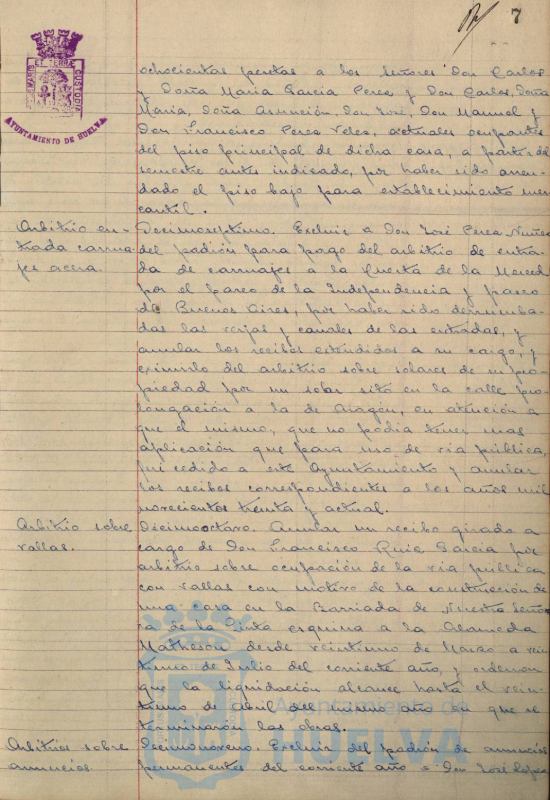 7
PORTUS MARIS ET TERRAE CUSTODIA
AYUNTAMIENTO DE HUELVA
ochocientas pesetas a los Señores Don Carlos
y Doña Maria Garcia Perea y Don Carlos, Doña
Maria, Doña Asunción, Don José, Don Manuel y
Don Francisco Perea Velez, actuales ocupantes
del piso principal de dicha casa, a partir del
semestre antes indicado, por haber sido arren-
dado el piso bajo para establecimiento mer-
cantil.
Arbitrio en-
trada carrua-
jes acera.
Decimoseptimo. Excluir a Don José Perea Nuñez
del padrón para pago del arbitrio de entra-
da de carruajes a la Cuesta de la Merced
por el paseo de la Independencia y paseo
de Buenos Aires, por haber sido derrumba-
das las verjas y canales de las entradas, y
anular los recibos extendidos a su cargo, y
eximirlo del arbitrio sobre solares de su pro-
piedad por un solar sito en la calle pro-
longación a la de Aragón, en atención a
que el mismo, que no podia tener mas
aplicación que para uso de via pública,
fué cedido a este Ayuntamiento y anular
los recibos correspondientes a los años mil
novecientos treinta y actual.
Arbitrio sobre
vallas.
Decimoctavo. Anular un recibo girado a
cargo de Don Francisco Ruiz Garcia por
arbitrio sobre ocupación de la via pública
con vallas con motivo de la construcción de
una casa en la Barriada de Nuestra Seño-
ra de la Cinta esquina a la Alameda
Matheson desde veintiuno de Marzo a vein-
tiuno de Julio del corriente año, y ordenar
que la liquidación alcance hasta el vein-
tiuno de abril del mismo año en que se
terminarón las obras.
Arbitrios sobre
anuncios.
Decimonoveno. Excluir del padrón de anuncios
permanentes del corriente año a Don José Lopez
Ayuntamiento de
HUELVA